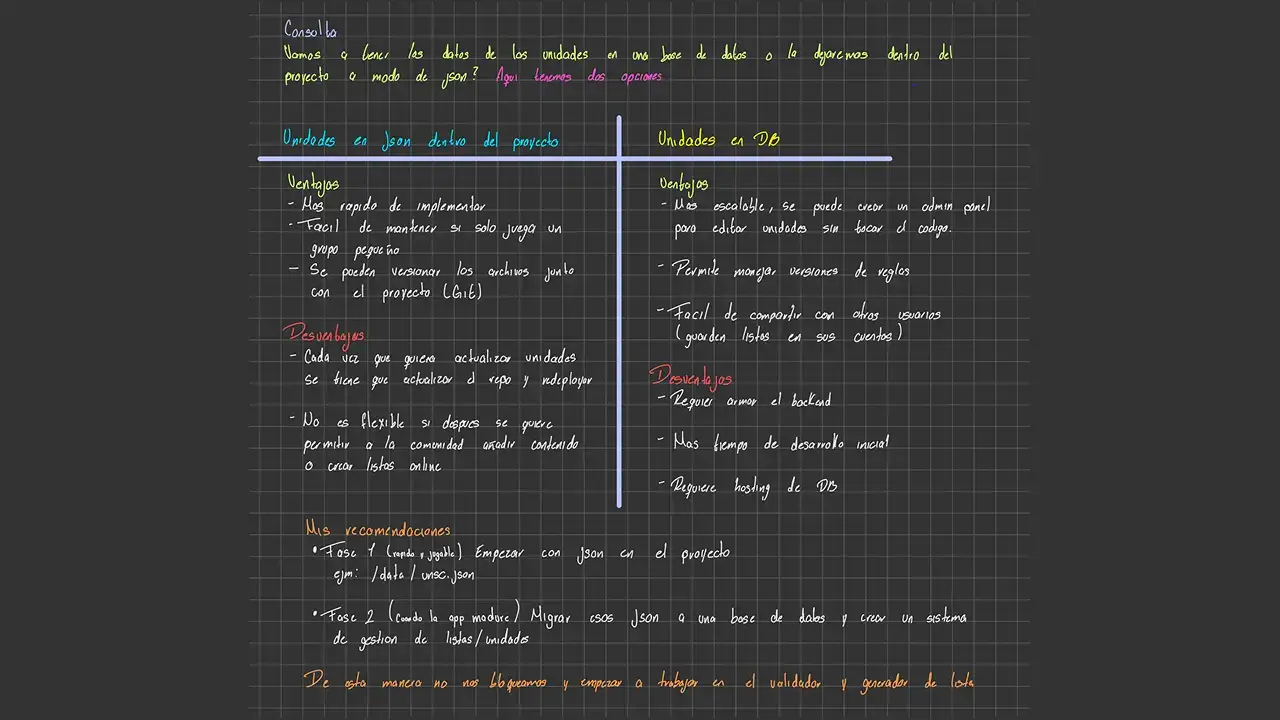 Consulta
Vamos a tener los datos de los unidades en una base de datos o la dejaremos dentro del
proyecto a modo de json? Aqui tenemos dos opciones
Unidades en json dentro del proyecto
Ventajas
- Mas rapido de implementar
- Facil de mantener si solo juega un
grupo pequeño
- Se pueden versionar los archivos junto
con el proyecto (Git)
Desventajas
- Cada vez que quiera actualizar unidades
se tiene que actualizar el repo y redeployar
- No es flexible si despues se quiere
permitir a la comunidad añadir contenido
o crear listas online
Unidades en DB
Ventajas
- Mas escalable, se puede crear un admin panel
para editar unidades sin tocar el codigo.
- Permite manejar versiones de reglas
- Facil de compartir con otros usuarios
(guarden listas en sus cuentas)
Desventajas
- Requier armar el backend
- Mas tiempo de desarrollo inicial
- Requiere hosting de DB
Mis recomendaciones
• Fase 1 (rapido y jugable) Empezar con json en el proyecto
ejm: /data/unsc.json
• Fase 2 (Cuando la app madure) Migrar esos json a una base de datos y crear un sistema
de gestion de listas/unidades
De esta manera no nos bloqueamos y empezar a trabajar en el validador y generador de lista